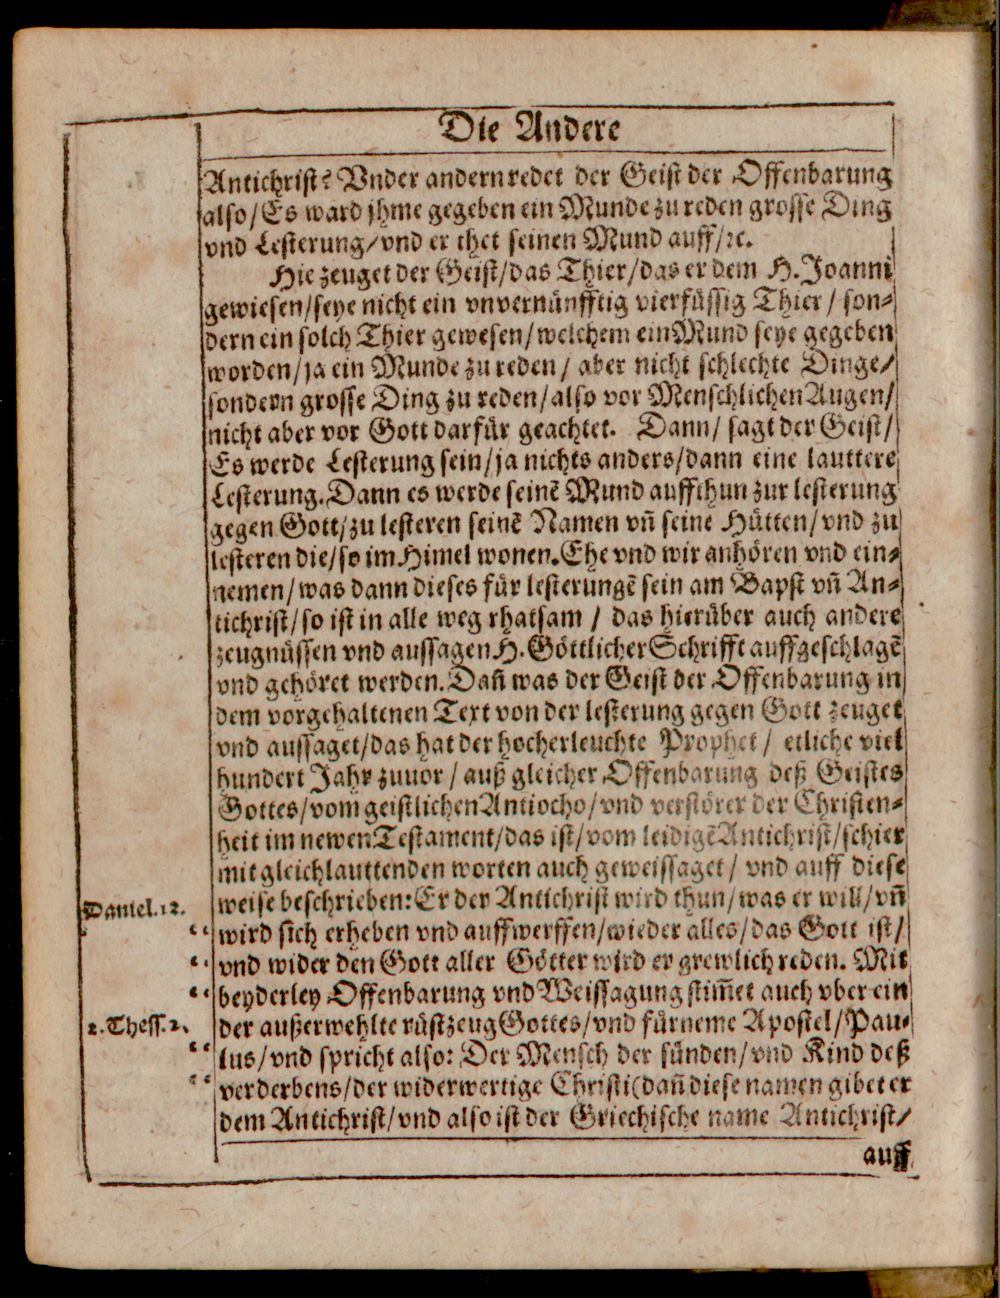 Die Andere
Antichrist? Vnder andern redet der Geist der Offenbarung
also/Es ward jhme gegeben ein Munde zu reden grosse Ding
vnd Lesterung/vnd er thet seinen Mund auff/ꝛc.
Hie zeuget der Geist/das Thier/das er dem H. Joanni
gewiesen/seye nicht ein vnvernünfftig vierfüssig Thier / son-
dern ein solch Thier gewesen/welchem ein Mund seye gegeben
worden/ja ein Munde zu reden / aber nicht schlechte Dinge/
sondern grosse Ding zu reden/also vor Menschlichen Augen/
nicht aber vor Gott darfür geachtet. Dann/ sagt der Geist/
Es werde Lesterung sein/ja nichts anders/dann eine lauttere
Lesterung. Dann es werde seinē Mund auffthun zur lesterung
gegen Gott/zu lesteren seinē Namen vñ seine Hütten/vnd zu
lesteren die/so im Himel wonen. Ehe vnd wir anhören vnd ein-
nemen/was dann dieses für lesterungē sein am Bapst vñ An-
tichrist/so ist in alle weg rhatsam / das hierüber auch andere
zeugnüssen vnd aussagen H. Göttlicher Schrifft auffgeschlagē
vnd gehöret werden. Dañ was der Geist der Offenbarung in
dem vorgehaltenen Text von der lesterung gegen Gott zeuget
vnd aussaget/das hat der hocherleuchte Prophet / etliche viel
hundert Jahr zuuor / auß gleicher Offenbarung deß Geistes
Gottes/vom geistlichen Antiocho/vnd verstörer der Christen-
heit im newen Testament/das ist/vom leidigē Antichrist/schier
mit gleichlauttenden worten auch geweissaget / vnd auff diese
Daniel.12. weise beschrieben: Er der Antichrist wird thun/was er will/vñ
“ wird sich erheben vnd auffwerffen/wieder alles/das Gott ist/
“ vnd wider den Gott aller Götter wird er grewlich reden. Mit
“ beyderley Offenbarung vnd Weissagung stim̄et auch vberein
2.Thess.2. der außerwehlte rüstzeug Gottes/vnd fürneme Apostel/Pau-
“ lus/vnd spricht also: Der Mensch der sünden/vnd Kind deß
“ verderbens/der widerwertige Christi(dañ diese namen gibet er
dem Antichrist/vnd also ist der Griechische name Antichrist/
auff